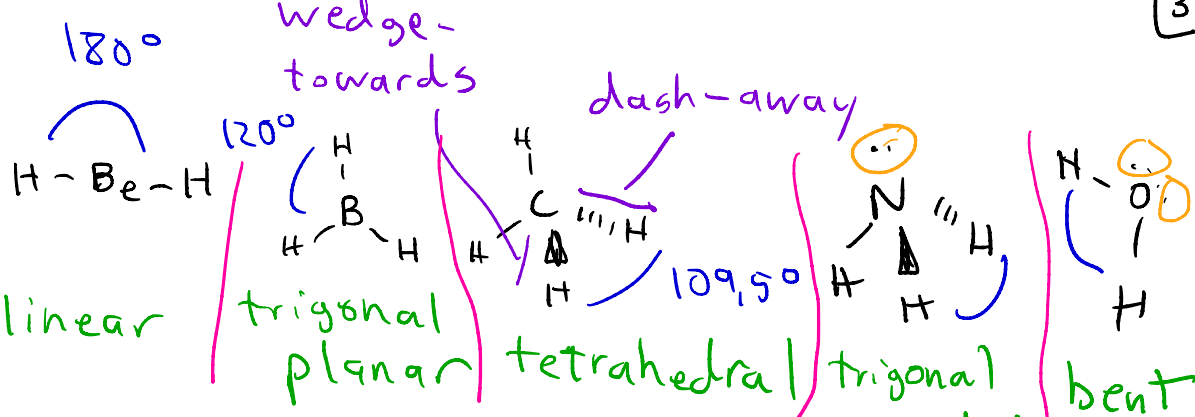 wedge-
towards
180°
dash-away
120°
H - Be - H
H
B
H H
H
C
H H
H
109,5°
N
H H
H
H - O
H
3
linear
trigonal
planar
tetrahedral
trigonal
bent